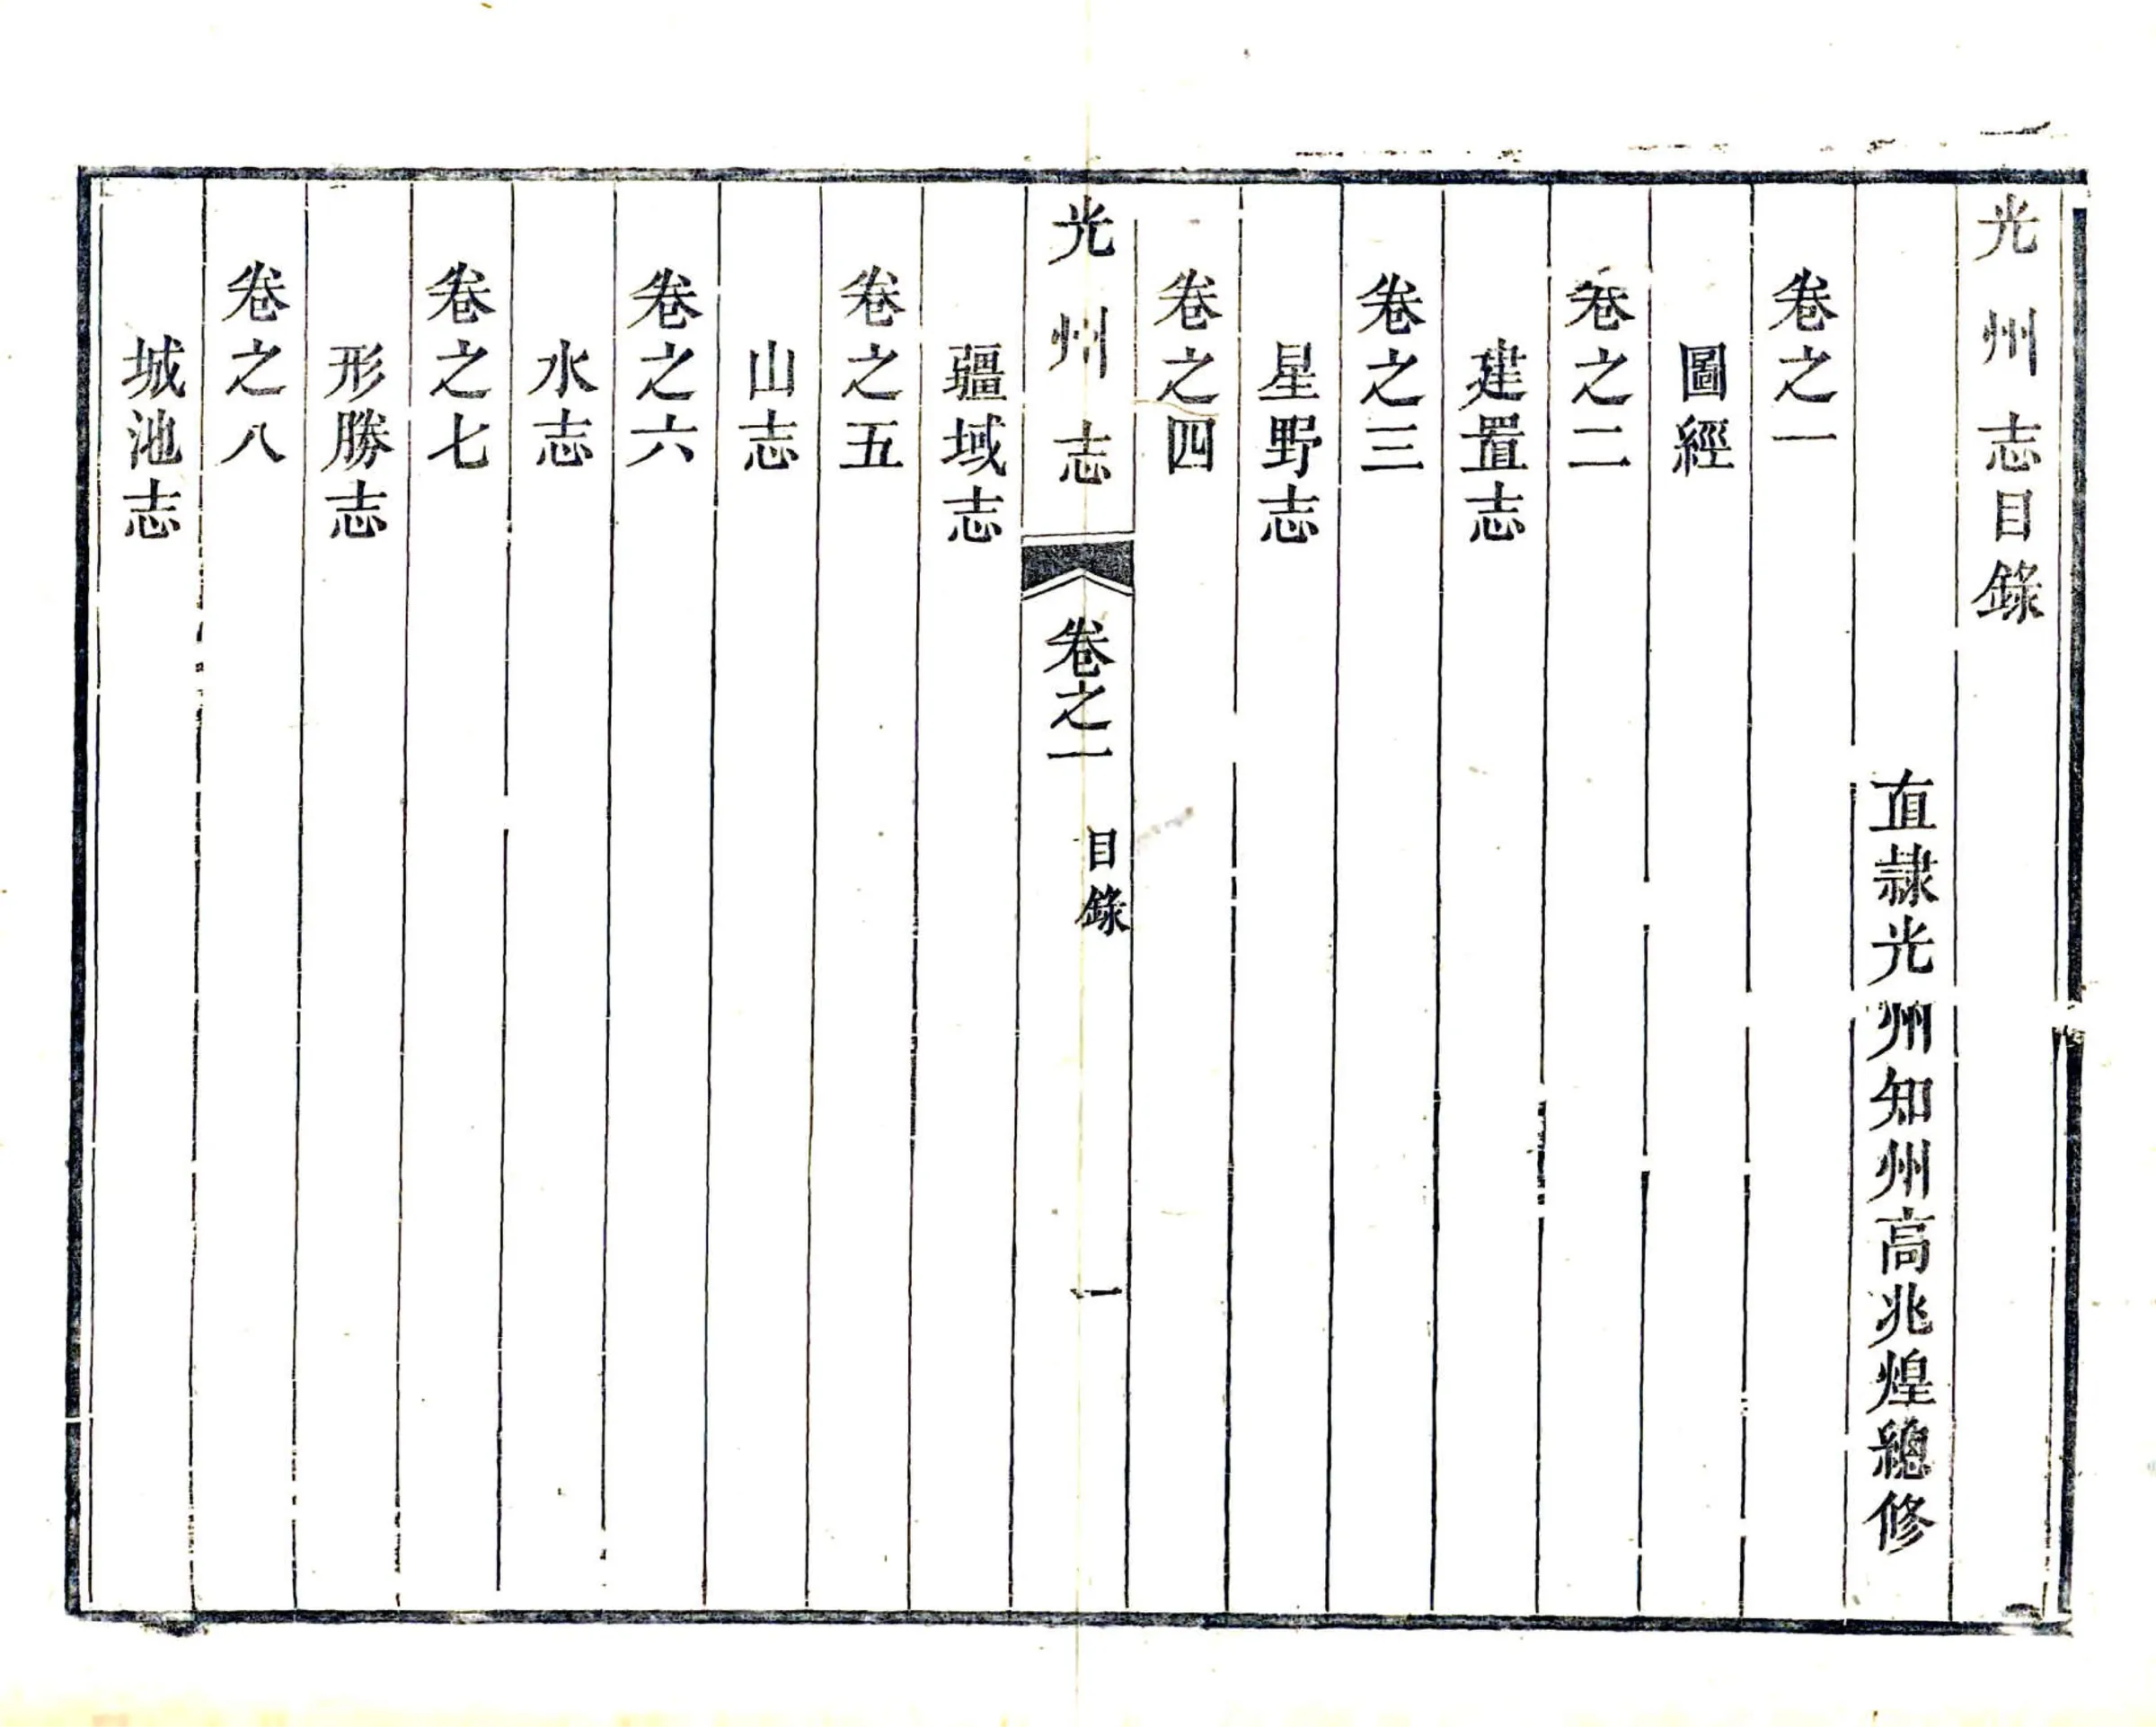 光州志目錄
直隸光州知州高兆煌總修
卷之一
圖經
卷之二
建置志
卷之三
星野志
卷之四
光州志 卷之一 目錄 一
疆域志
卷之五
山志
卷之六
水志
卷之七
形勝志
卷之八
城池志